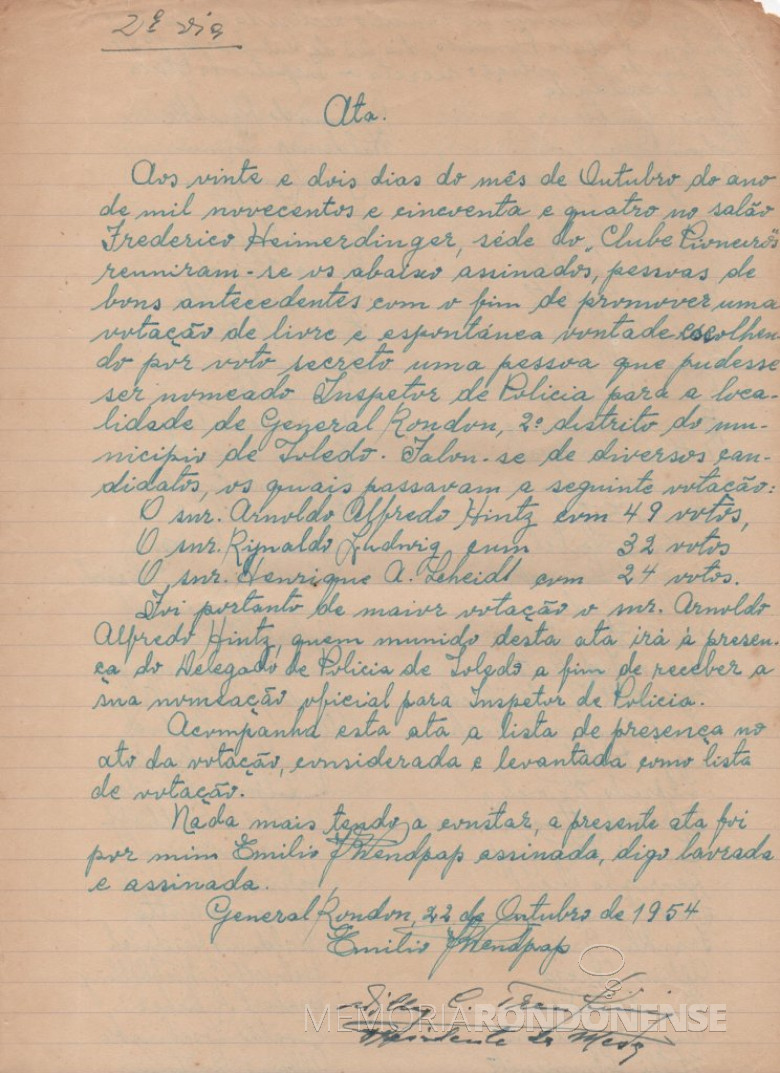 2ª via
Ata.
Aos vinte e dois dias do mês de Outubro do ano
de mil novecentos e cincoenta e quatro no salão
Frederico Heimerdinger, séde do „Clube Pioneiros"
reuniram-se os abaixo assinados, pessoas de
bons antecedentes com o fim de promover uma
votação de livre e espontánea vontade escolhen-
do por voto secreto uma pessoa que pudesse
ser nomeado Inspetor de Policia para a loca-
lidade de General Rondon, 2º distrito do mu-
nicipio de Toledo. Falou-se de diversos can-
didatos, os quais passavam a seguinte votação:
O snr. Arnoldo Alfredo Hintz com 49 votos,
O snr. Rijnaldo Ludwig com 32 votos
O snr. Henrique A. Scheidt com 24 votos.
Foi portanto de maior votação o snr. Arnoldo
Alfredo Hintz, quem munido desta ata irá à presen-
ça do Delegado de Policia de Toledo a fim de receber a
sua nomeação oficial para Inspetor de Policia.
Acompanha esta ata a lista de presença no
ato da votação, considerada e levantada como lista
de votação.
Nada mais tendo a constar, a presente ata foi
por mim Emilio Wendpap assinada, digo lavrada
e assinada.
General Rondon, 22 de Outubro de 1954
Emilio Wendpap
Willy C.
Presidente da Mesa
MEMORIARONDONENSE